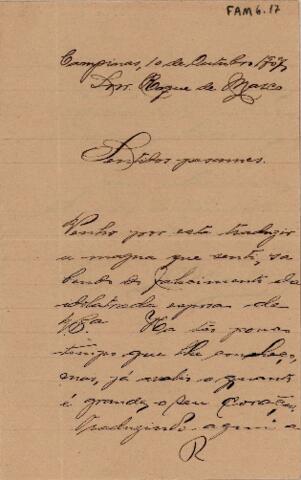 FAM 6.17
Campinas, 10 de Outubro 1907
Snr. Roque de Marco
Sentidos pesames.
Venho por esta traduzir
a magua que senti, sa
bendo do falecimento da
idolatrada esposa de
V.Sa Ha tão pouco
tempo que lhe conheço,
mas, já avalio o quanto
é grande, o seu coração,
Traduzindo aqui a
R